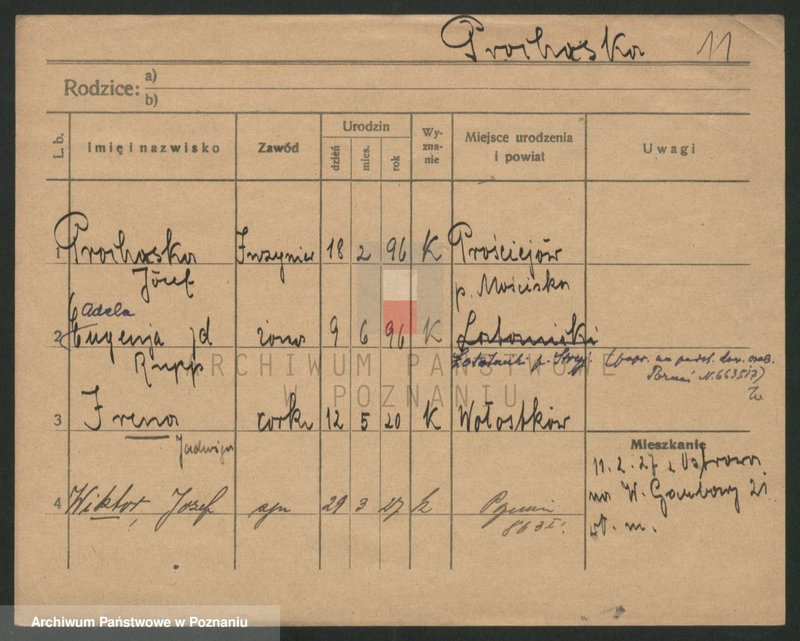 Prochaska 11
Rodzice: a)
b)
L. b. Imię i nazwisko Zawód Urodzin dzień mies. rok Wy-zna-nie Miejsce urodzenia i powiat Uwagi
1 Prochaska Inżynier 18 2 96 K Prościejów
Józef p. Mościska
Adela
2 Eugenja żona 9 6 96 K Łotoniki
Rupp
Poznań N. 6635/7)
3 Irena córka 12 5 20 K Wołostków
Jadwiga
Mieszkanie
11. 2. 27 z Ostrowa
na W. Garbary 21
4 Wiktor, Józef syn 29 3 27 k Poznań
863 I.
ARCHIWUM PAŃSTWOWE
W POZNANIU
Archiwum Państwowe w Poznaniu